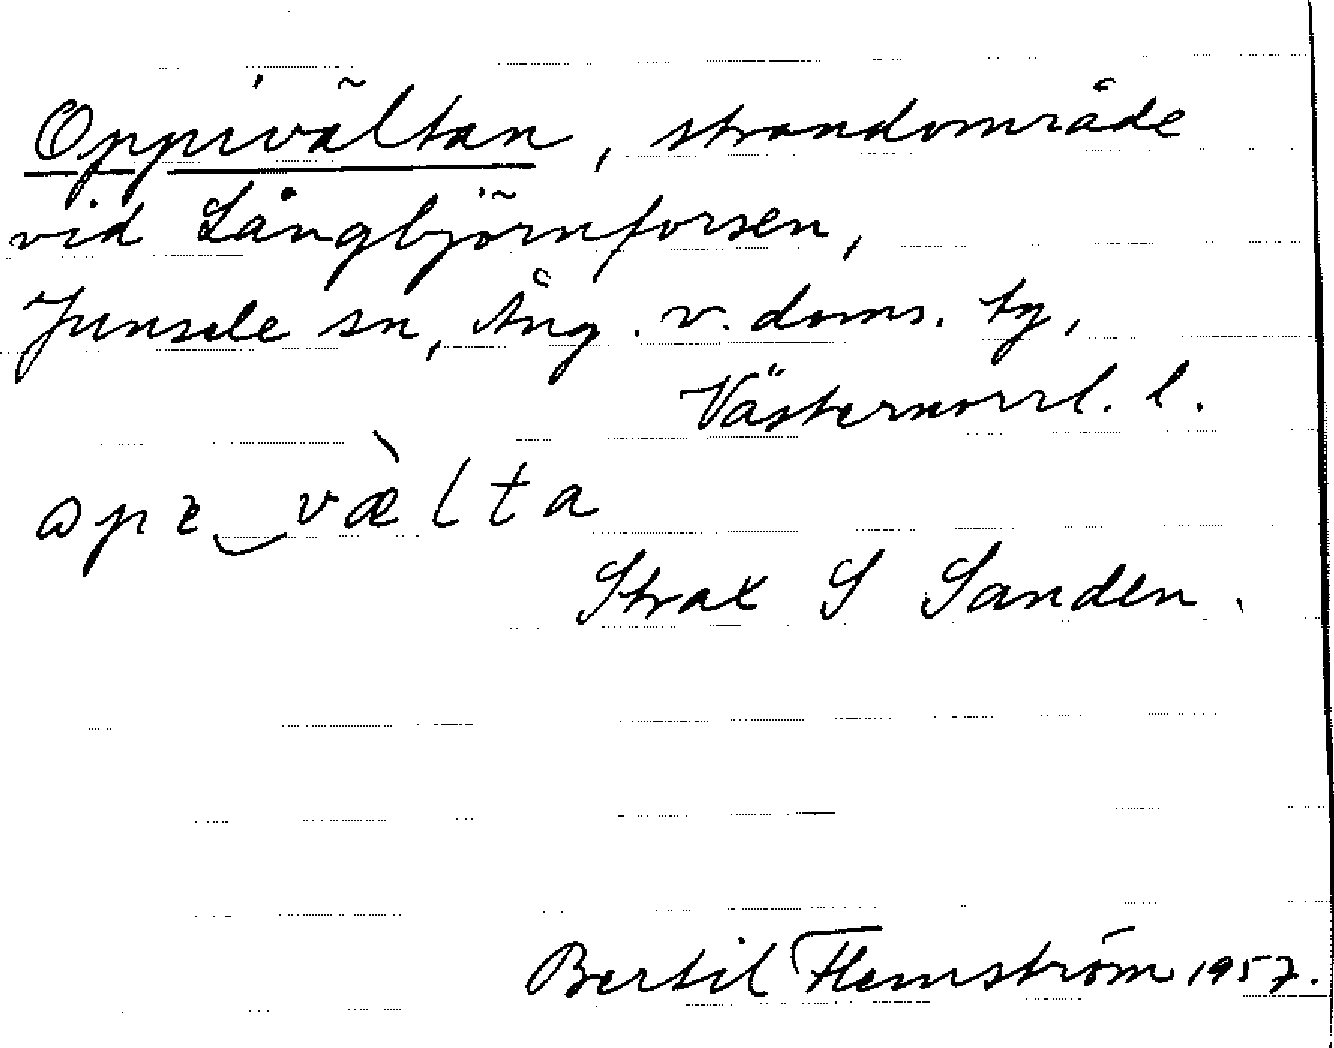 Oppivältan, strandområde
vid Långbjörnforsen,
Junsele sn, Ång. v. doms. tg,
Västernorrl. l.
opɪ‿væ̀lta
Strax S Sanden.
Bertil Flemström 1957.